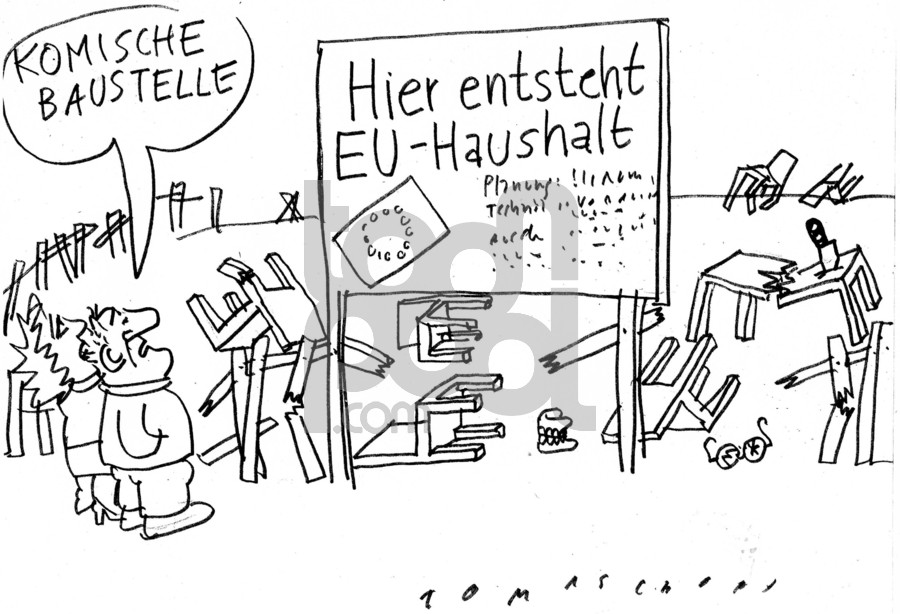 KOMISCHE
BAUSTELLE
Hier entsteht
EU-Haushalt
Planung:
Technik
durch
toonpool
.com
TOMASCHOFF